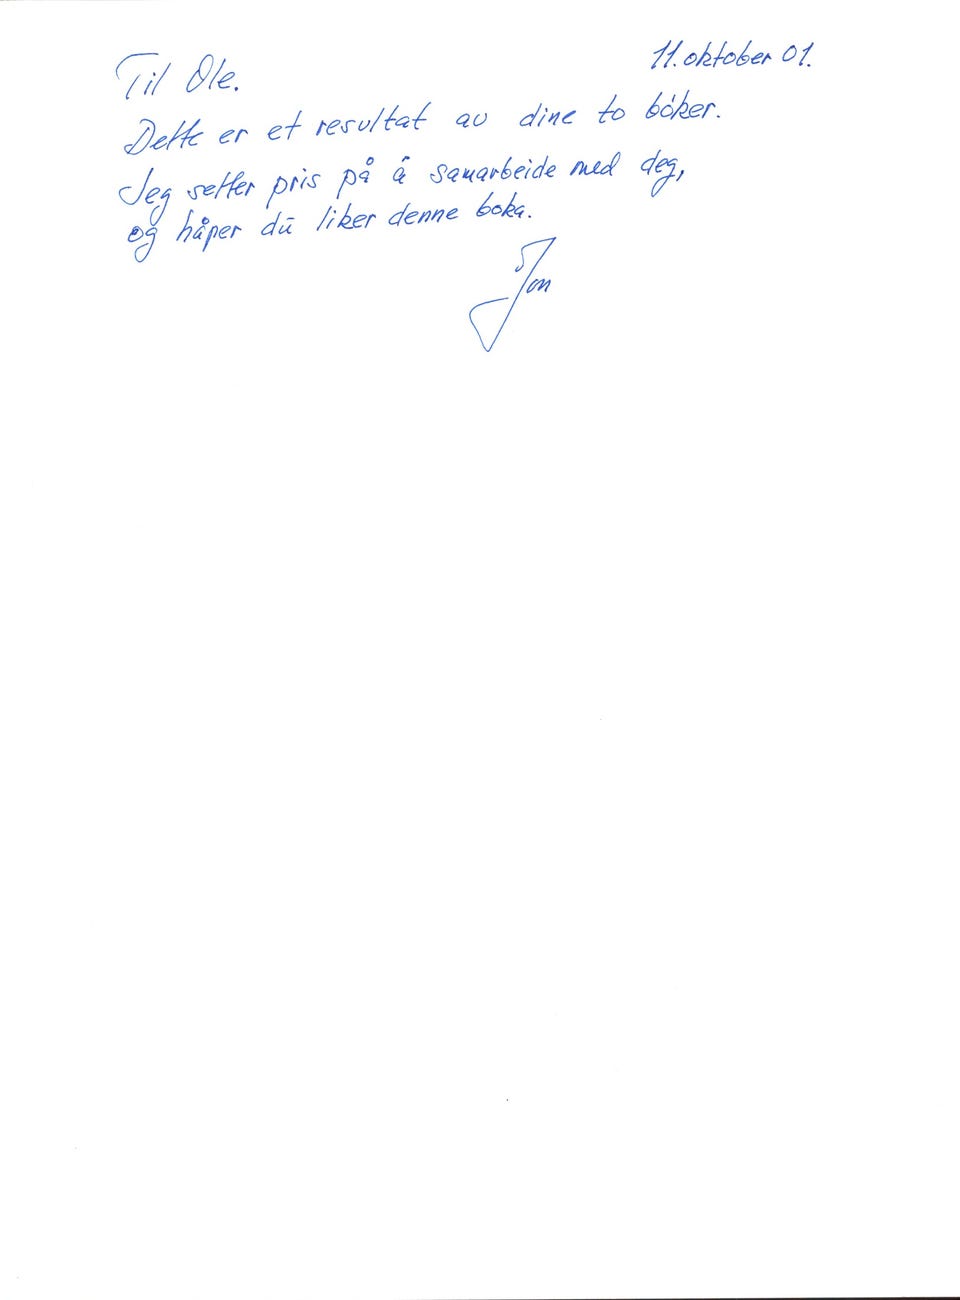 11. oktober 01.
Til Ole.
Dette er et resultat av dine to bøker.
Jeg setter pris på å samarbeide med deg,
og håper du liker denne boka.
Jon